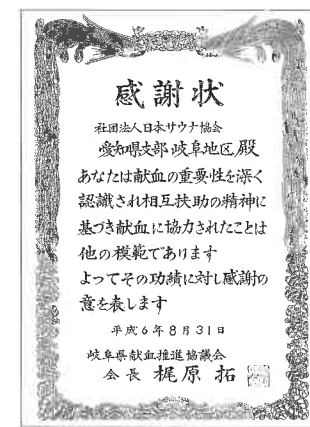 感謝状
社団法人日本サウナ協会
愛知県支部岐阜地区殿
あなたは献血の重要性を深く
認識され相互扶助の精神に
基づき献血に協力されたことは
他の模範であります
よってその功績に対し感謝の
意を表します
平成6年8月31日
岐阜県献血推進協議会
会長 梶原 拓